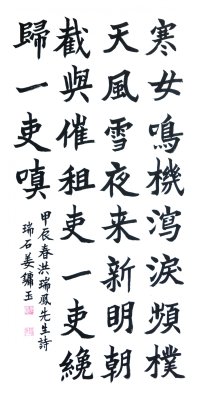 寒女鳴機瀉淚頻樸
天風雪夜来新明朝
截與催租吏一吏纔
歸一吏嗔
甲辰春洪瑞鳳先生詩
瑞石姜鏞玉